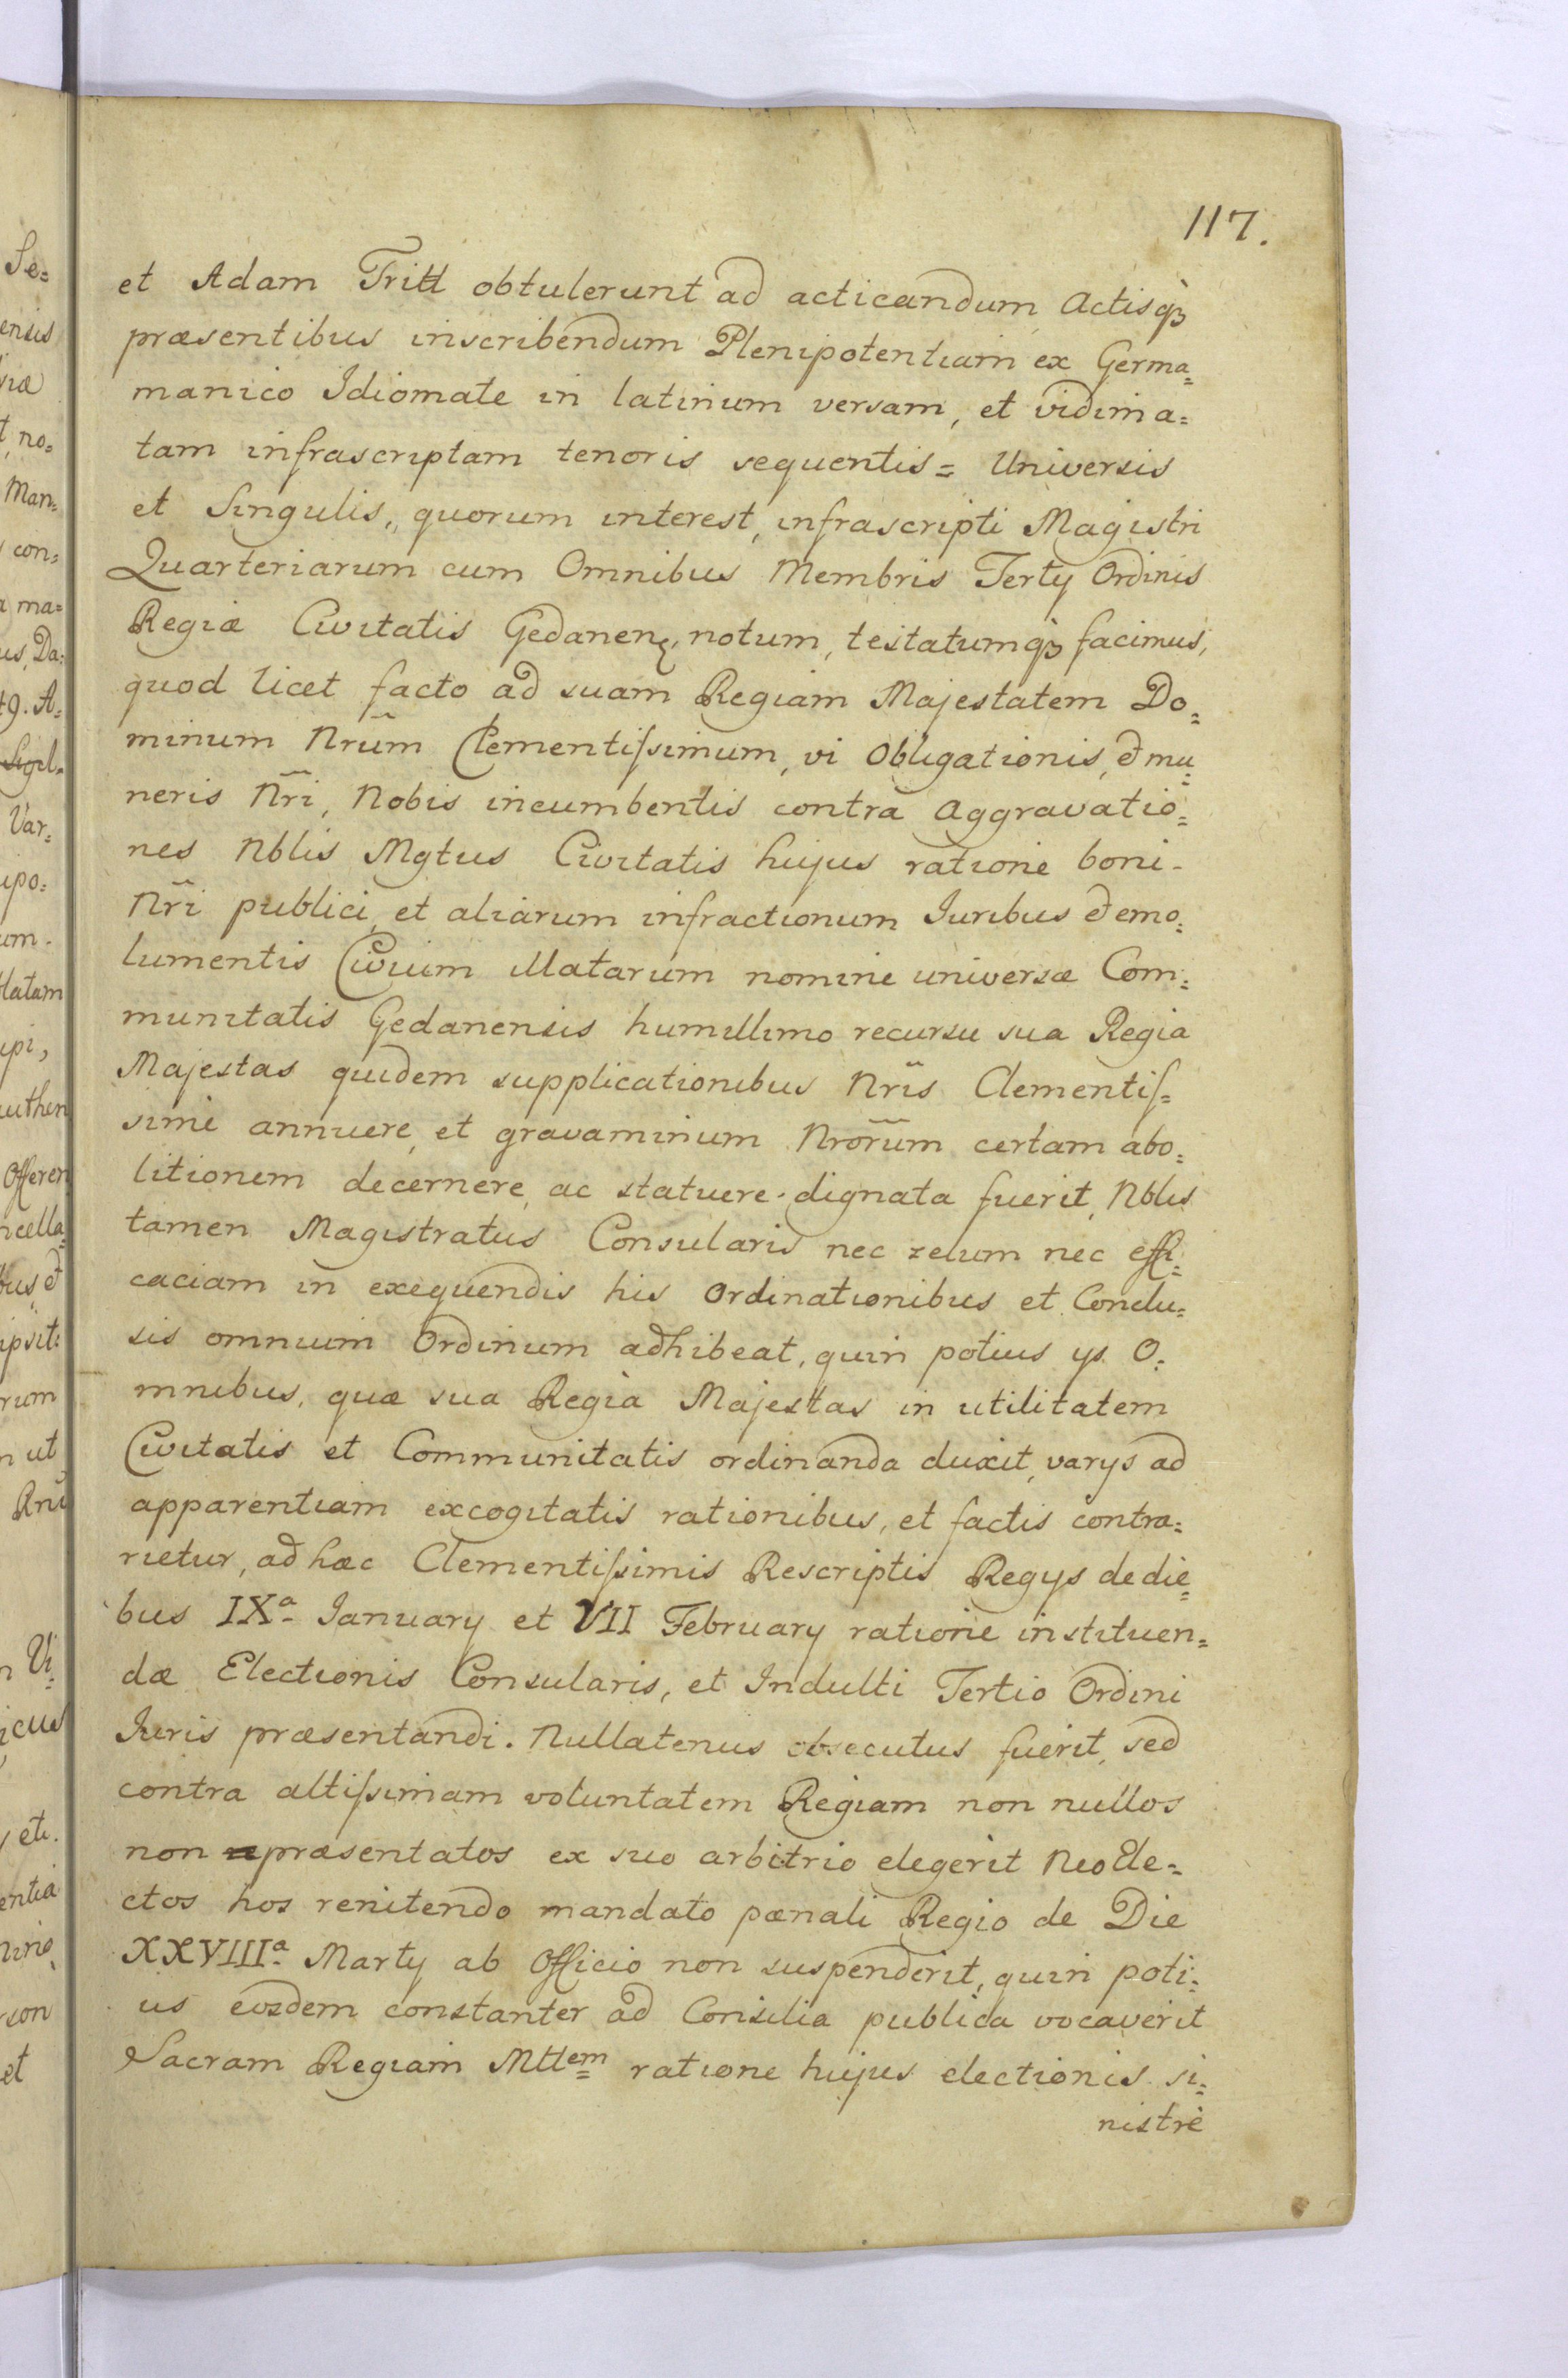 117.
et Adam Tritt obtulerunt ad acticandum Actisq̃
præsentibus inscribendum Plenipotentiam ex Germa=
manico Idiomate in latinum versam, et vidima=
tam infrascriptam tenoris sequentis = Universis
et Singulis, quorum interest, infrascripti Magistri
Quarteriarum cum Omnibus Membris Tertÿ Ordinis
Regiæ Civitatis Gedanen, notum, testatumq̃ facimus,
quod licet facto ad suam Regiam Majestatem Do=
minum Nrũm Clementiſsimum, vi Obligationis, et mu=
neris Nr̃i, Nobis incumbentis contra Aggravatio=
nes Nblis Mgtus Civitatis hujus ratione boni-
Nr̃i publici, et aliarum infractionum Juribus et emo=
lumentis Civium illatarum nomine universæ Com=
munitatis Gedanensis humillimo recursu sua Regia
Majestas quidem supplicationibus Nr̃is Clementiſ=
sime annuere, et gravaminum Nrõrum certam abo=
litionem decernere, ac statuere dignata fuerit, Nblis
tamen Magistratus Consularis nec zelum nec effi=
caciam in exequendis his Ordinationibus et Conclu=
sis omnium Ordinum adhibeat, quin potius ijs O=
mnibus, quæ sua Regia Majestas in utilitatem
Civitatis et Communitatis ordinanda duxit, varijs ad
apparentiam excogitatis rationibus, et factis contra=
rietur, ad hæc Clementiſsimis Rescriptis Regijs de die=
bus IXa Januarÿ et VII Februarÿ ratione instituen=
dæ Electionis Consularis, et Indulti Tertio Ordini
Juris præsentandi. Nullatenus obsecutus fuerit, sed
contra altiſsimam voluntatem Regiam non nullos
non præsentatos ex suo arbitrio elegerit Neo Ele=
ctos hos renitendo mandato pænali Regio de Die
XXVIIIa Martÿ ab Officio non suspenderit, quin poti=
us eosdem constanter ad Consilia publica vocaverit
Sacram Regiam Mttem ratione hujus electionis si=
nistrè